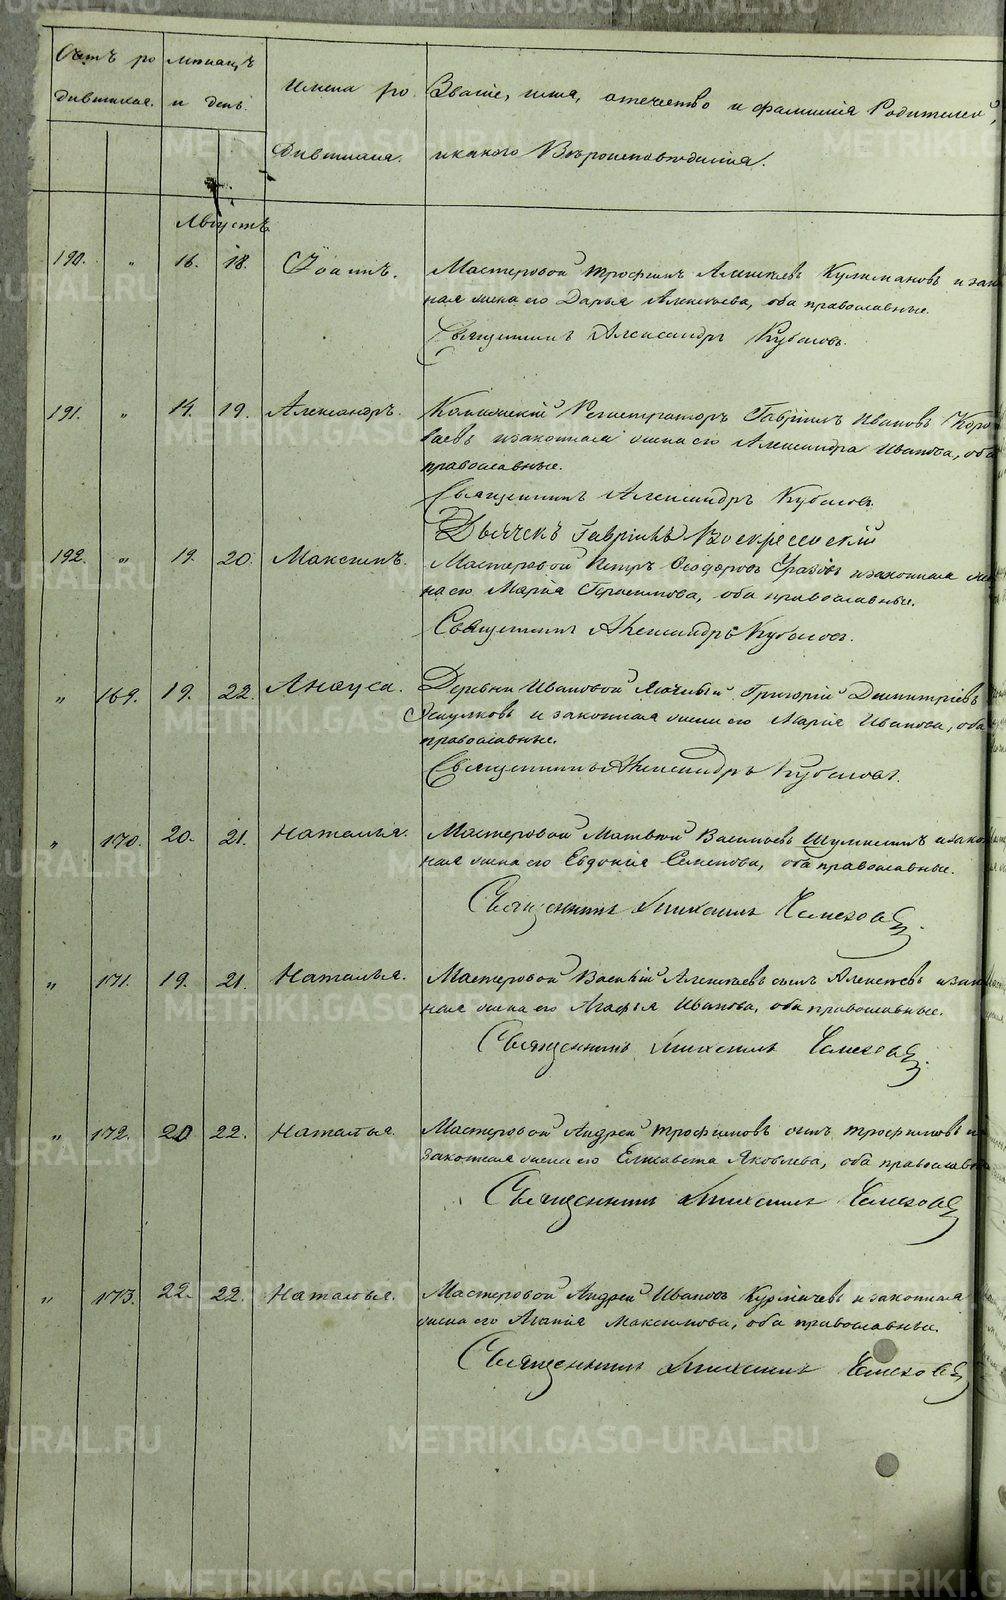 Счетъ ро мѣсяцъ Имена ро Званіе, имя, отечество и фамилія Родителей,
дившихся. и день. дившихся. и какого Вѣроисповѣданія.
Августъ
190. " 16. 18. Іоаннъ. Мастеровой Трофимъ Алексѣевъ и закон
ная жена его Дарья Алексѣева, оба православные.
Священникъ Александръ
191. " 14. 19. Александръ. Регистраторъ Гавріилъ Ивановъ Коро
ваевъ и законная жена его Александра Иванова, оба
православные.
Священникъ Александръ
Дьячекъ Гавріилъ Воскресенскій
192. " 19. 20. Максимъ. Мастеровой Петръ Ѳеодоровъ и законная же
на его Марія Герасимова, оба православные.
Священникъ Александръ
" 169. 19. 22. Анѳуса. Деревни Ивановой Григорій Димитріевъ
и законная жена его Марія Иванова, оба
православные.
Священникъ Александръ
" 170. 20. 21. Наталья. Мастеровой Матвѣй Васильевъ и закон
ная жена его Евдокія Семенова, оба православные.
Священникъ Михаилъ
" 171. 19. 21. Наталья. Мастеровой Василій Алексѣевъ сынъ Алексѣевъ и закон
ная жена его Агафья Иванова, оба православные.
Священникъ Михаилъ
" 172. 20 22. Наталья. Мастеровой Андрей Трофимовъ сынъ Трофимовъ и
законная жена его Елисавета Яковлева, оба православные
Священникъ Михаилъ
" 173. 22. 22. Наталья. Мастеровой Андрей Ивановъ и законная
жена его Агапія Максимова, оба православные.
Священникъ Михаилъ
METRIKI.GASO-URAL.RU